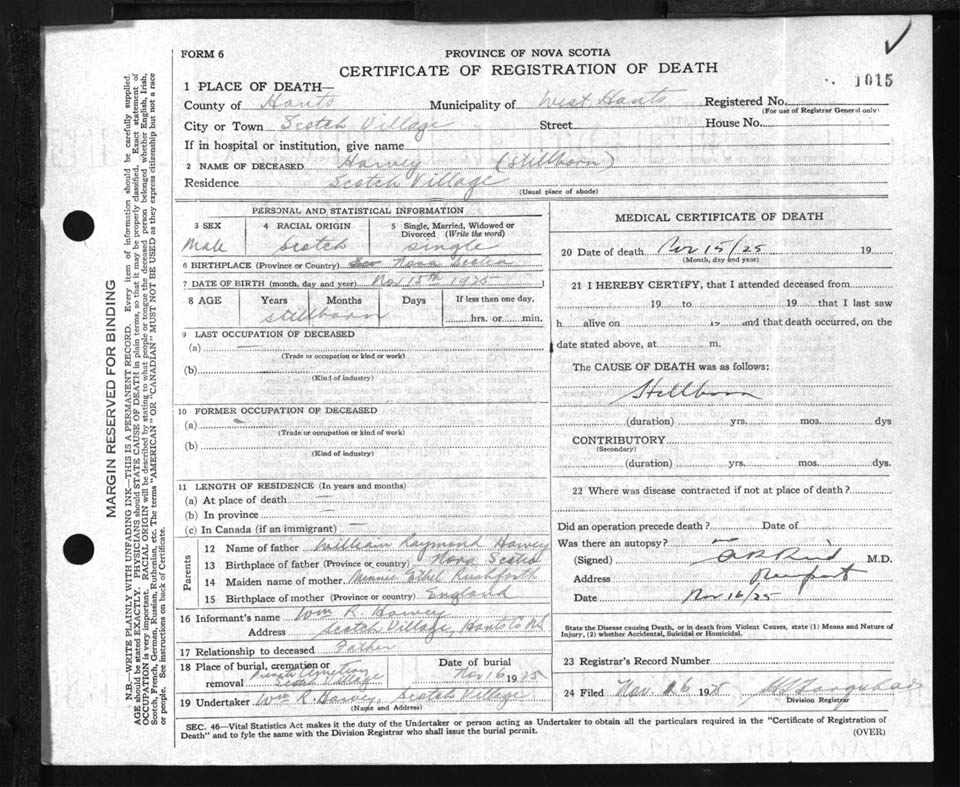 FORM 6
PROVINCE OF NOVA SCOTIA
CERTIFICATE OF REGISTRATION OF DEATH
1015
1 PLACE OF DEATH—
County of Hants Municipality of West Hants Registered No.
(For use of Registrar General only)
City or Town Scotch Village Street House No.
If in hospital or institution, give name
2 NAME OF DECEASED Harvey (Stillborn)
Residence Scotch Village
(Usual place of abode)
PERSONAL AND STATISTICAL INFORMATION
3 SEX 4 RACIAL ORIGIN 5 Single, Married, Widowed or Divorced (Write the word)
Male Scotch Single
6 BIRTHPLACE (Province or Country) Nova Scotia
7 DATE OF BIRTH (month, day and year) Nov 15th 1925
8 AGE Years Months Days If less than one day,
stillborn hrs. or min.
9 LAST OCCUPATION OF DECEASED
(a) —
(Trade or occupation or kind or work)
(b)
(Kind of industry)
10 FORMER OCCUPATION OF DECEASED
(a)
(Trade or occupation or kind of work)
(b)
(Kind of industry)
11 LENGTH OF RESIDENCE (In years and months)
(a) At place of death —
(b) In province —
(c) In Canada (if an immigrant) —
Parents
12 Name of father William Raymond Harvey
13 Birthplace of father (Province or country) Nova Scotia
14 Maiden name of mother Minnie Ethel Rushforth
15 Birthplace of mother (Province or country) England
16 Informant's name Wm R. Harvey
Address Scotch Village, Hants Co NS
17 Relationship to deceased Father
18 Place of burial, cremation or removal Private Cemetery Scotch Village Date of burial Nov 16 1925
19 Undertaker Wm R. Harvey, Scotch Village
(Name and Address)
MEDICAL CERTIFICATE OF DEATH
20 Date of death Nov 15/25 19
(Month, day and year)
21 I HEREBY CERTIFY, that I attended deceased from
19 to 19 that I last saw
h alive on 19 and that death occurred, on the
date stated above, at m.
The CAUSE OF DEATH was as follows:
Stillborn
(duration) yrs. mos. dys
CONTRIBUTORY
(Secondary)
(duration) yrs. mos. dys.
22 Where was disease contracted if not at place of death?
Did an operation precede death? Date of
Was there an autopsy? no
(Signed) Reid M.D.
Address Newport
Date Nov 16/25
State the Disease causing Death, or in death from Violent Causes, state (1) Means and Nature of
Injury, (2) whether Accidental, Suicidal or Homicidal.
23 Registrar's Record Number
24 Filed Nov. 16 192
Division Registrar
SEC. 46—Vital Statistics Act makes it the duty of the Undertaker or person acting as Undertaker to obtain all the particulars required in the "Certificate of Registration of
Death" and to fyle the same with the Division Registrar who shall issue the burial permit. (OVER)
MARGIN RESERVED FOR BINDING
N.B.—WRITE PLAINLY WITH UNFADING INK—THIS IS A PERMANENT RECORD. Every item of information should be carefully supplied.
AGE should be stated EXACTLY. PHYSICIANS should STATE CAUSE OF DEATH in plain terms, so that it may be properly classified. Exact statement of
OCCUPATION is very important. RACIAL ORIGIN will be described by stating to what people or tongue the deceased person belonged whether English, Irish,
Scotch, French, German, Russian, Ruthenian, etc. The terms "AMERICAN" OR "CANADIAN" MUST NOT BE USED as they express citizenship but not a race
or people. See instructions on back of Certificate.